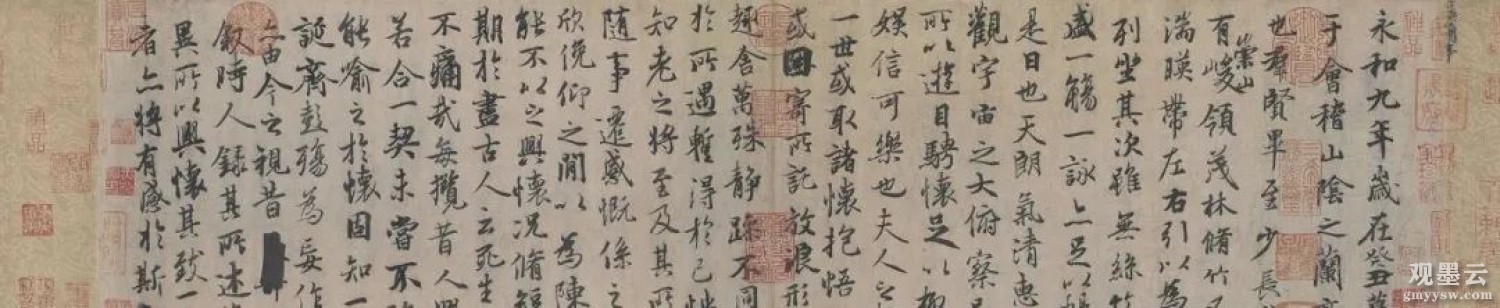 永和九年歲在癸丑
于會稽山陰之蘭
也羣賢畢至少長
有崇山峻領茂林脩竹
湍暎帶左右引以為
列坐其次雖無絲竹
盛一觴一詠亦足以暢
是日也天朗氣清惠
觀宇宙之大俯察
所以遊目騁懷足以極
娛信可樂也夫人之
一世或取諸懷抱悟
或因寄所託放浪形
趣舍萬殊静躁不同
於所遇蹔得於己怏
知老之將至及其所
随事遷感慨係之
欣俛仰之閒以為陳
能不以之興懷況脩短
期於盡古人云死生
不痛哉每攬昔人興
若合一契未嘗不臨
能喻之於懷固知一
誕齊彭殤為妄作
亦由今之視昔
叙時人録其所述
異所以興懷其致一
者亦將有感於斯
观墨云
gmyysw.com